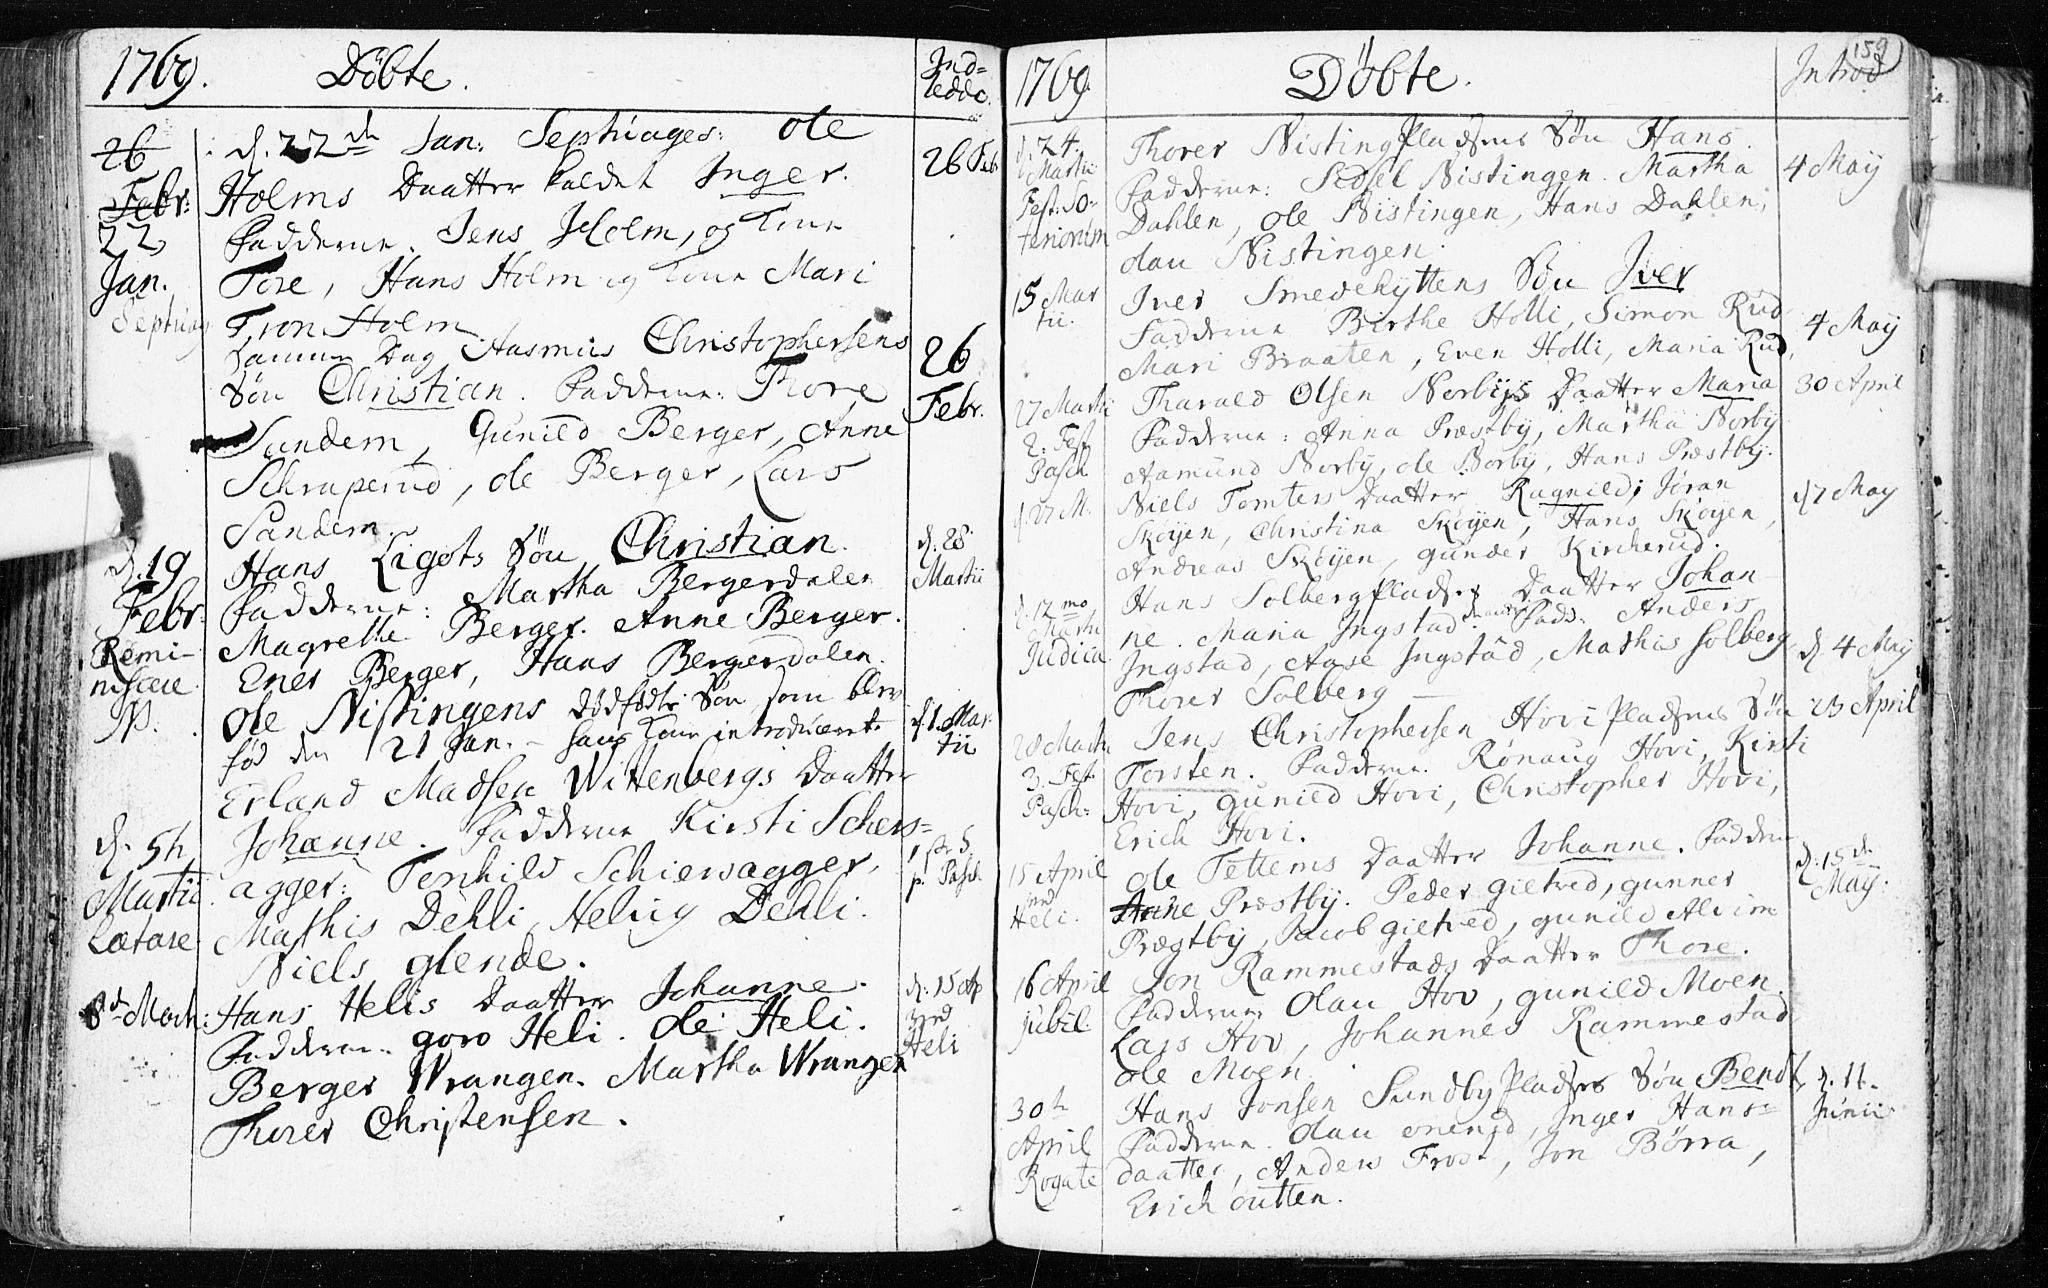 1769. Döbte. Ind=
ledde.
26
Febr:
22
Jan.
Septuag
d. 22de Jan: Septuages: Ole
Holms Daatter kaldet Inger.
Fadderne. Jens Holm, og Kone
Tore, Hans Holm og Kone Mari
Tron Holm
26 Feb
samme Dag Aasmus Christophersens
Sön Christian. Fadderne: Thore
Sundem, Gunild Berger, Anne
Schraperud, Ole Berger, Lars
Sandem.
26
Febr.
d. 19
Febr.
Remi-
niscere
Hans Ligots Sön Christian.
Fadderne: Martha Bergerdalen
Magrethe Berger. Anne Berger.
Ener Berger, Hans Bergerdalen.
d. 28
Martii
Ole Nistingens dödfödte Sön som blev
föd den 21 Jan. - hans Kone introduceret
d. 1 Mar-
tii
d. 5te
Martii.
Lætare
Erland Madsen Wittenbergs Daatter
Johanne. Fadderne Kirsti Schers=
agger: Tornhild Schiersagger,
Mathis Dehli, Helvig Dehli.
Niels glende.
p. Pasch
8de Mart:
Hans Helis Daatter Johanne.
Fadderne. goro Heli. Ole Heli.
Berger Wrangen. Martha Wrangen
Thorer Christensen.
d. 15 Ap
ved
Heli
1769. Döbte. Introd
159
d. 24.
Martii
Fest. So-
teriorum
Thorer Nisting Pladsens Sön Hans
Fadderne: Sidsel Nistingen. Martha
Dahlen, Ole Nistingen, Hans Dahlen;
Olau Nistingen.
4 Maÿ
15 Mar
tii.
Iver Smedehyttens Sön Iver
Fadderne Birthe Holli, Simon Rud
Mari Braaten, Even Holli, Maria Rud,
4 Maÿ
27 Martii
2. Fest
Pasch
Tharald Olsen Norbÿs Daatter Maria
Fadderne: Anna Præstbÿ, Martha Norbÿ
Aamund Norbÿ, Ole Norbÿ, Hans Præstbÿ.
30 April
d. 27 M.
Niels Tomters Daatter Ragnild; Jöran
Sköÿen, Christina Sköÿen, Hans Sköÿen,
Andreas Sköÿen, gunder Kircherud.
d 7 Maÿ
d. 12mo
Martii
Judica
Hans Solberg Pladsens Daatter Johan-
ne. Maria Ingstad Fadd: Anders
Ingstad, Aase Ingstad, Mathis Solberg
Thorer Solberg
d. 4 Maÿ
28 Martii
3. Fest
Pasch:
Jens Christophersen Hovi Pladsens Sön
Torsten. Fadderne. Rönaug Hovi, Kirsti
Hovi, gunild Hovi, Christopher Hovi,
Erich Hovi.
23 April
15 April
ved
Heli.
Ole Tettems Daatter Johanne. Faddern
Anne Præstbÿ. Peder gietved, gunner
Præstbÿ, Jacob gietved, gunild Alvim
d. 15de
Maÿ.
16 April
jubil.
Jon Rammestads Daatter Thore.
Fadderne Olau Hov, gunild Moen.
Lars Hov, Johannes Rammestad
Ole Moen.
30te
April
Rogate
Hans Jonsen Sundbÿ Pladses Sön Bendt,
Fadderne. Olau Onerud, Inger Hans=
daatter, Anders Frost, Jon Börra,
Erich Outten.
d. 11.
Junii